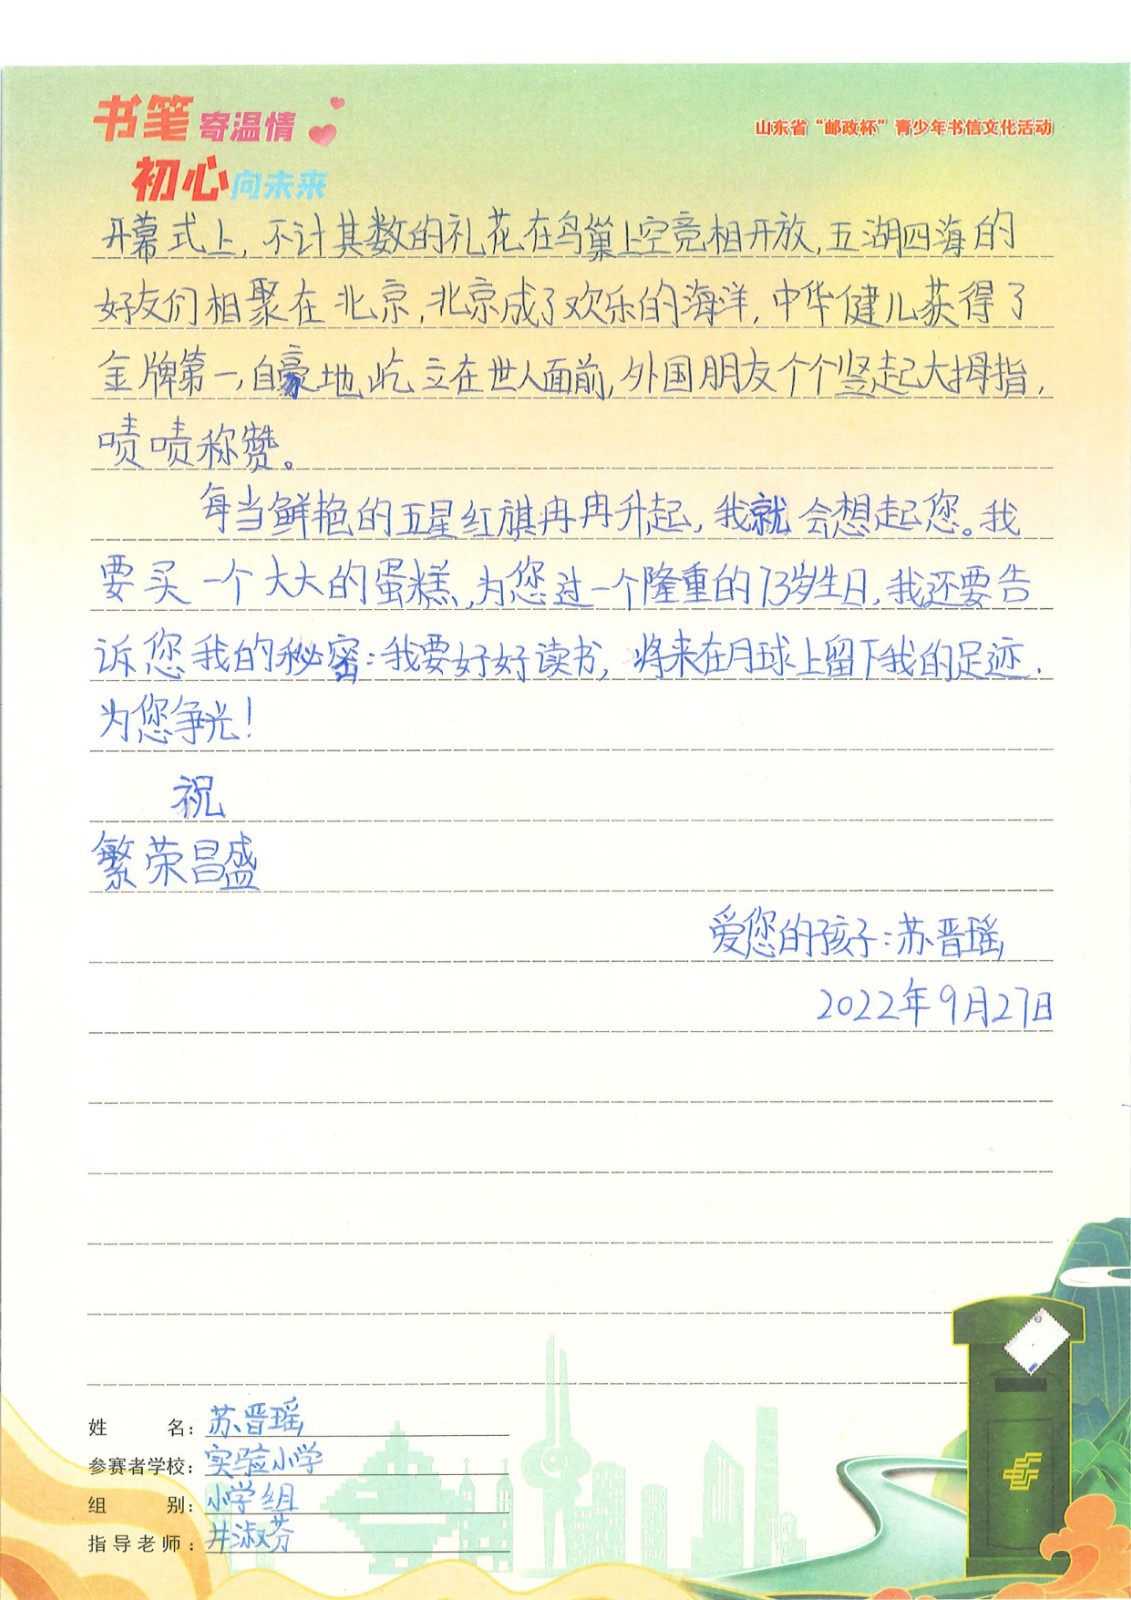 书笔寄温情
初心向未来
山东省“邮政杯”青少年书信文化活动
开幕式上，不计其数的礼花在鸟巢上空竞相开放，五湖四海的
好友们相聚在北京，北京成了欢乐的海洋，中华健儿获得了
金牌第一，自豪地屹立在世人面前，外国朋友个个竖起大拇指，
啧啧称赞。
每当鲜艳的五星红旗冉冉升起，我就会想起您。我
要买一个大大的蛋糕，为您过一个隆重的73岁生日，我还要告
诉您我的秘密：我要好好读书，将来在月球上留下我的足迹，
为您争光！
祝
繁荣昌盛
爱您的孩子：苏晋瑶
2022年9月27日
姓名：苏晋瑶
参赛者学校：实验小学
组别：小学组
指导老师：井淑芬